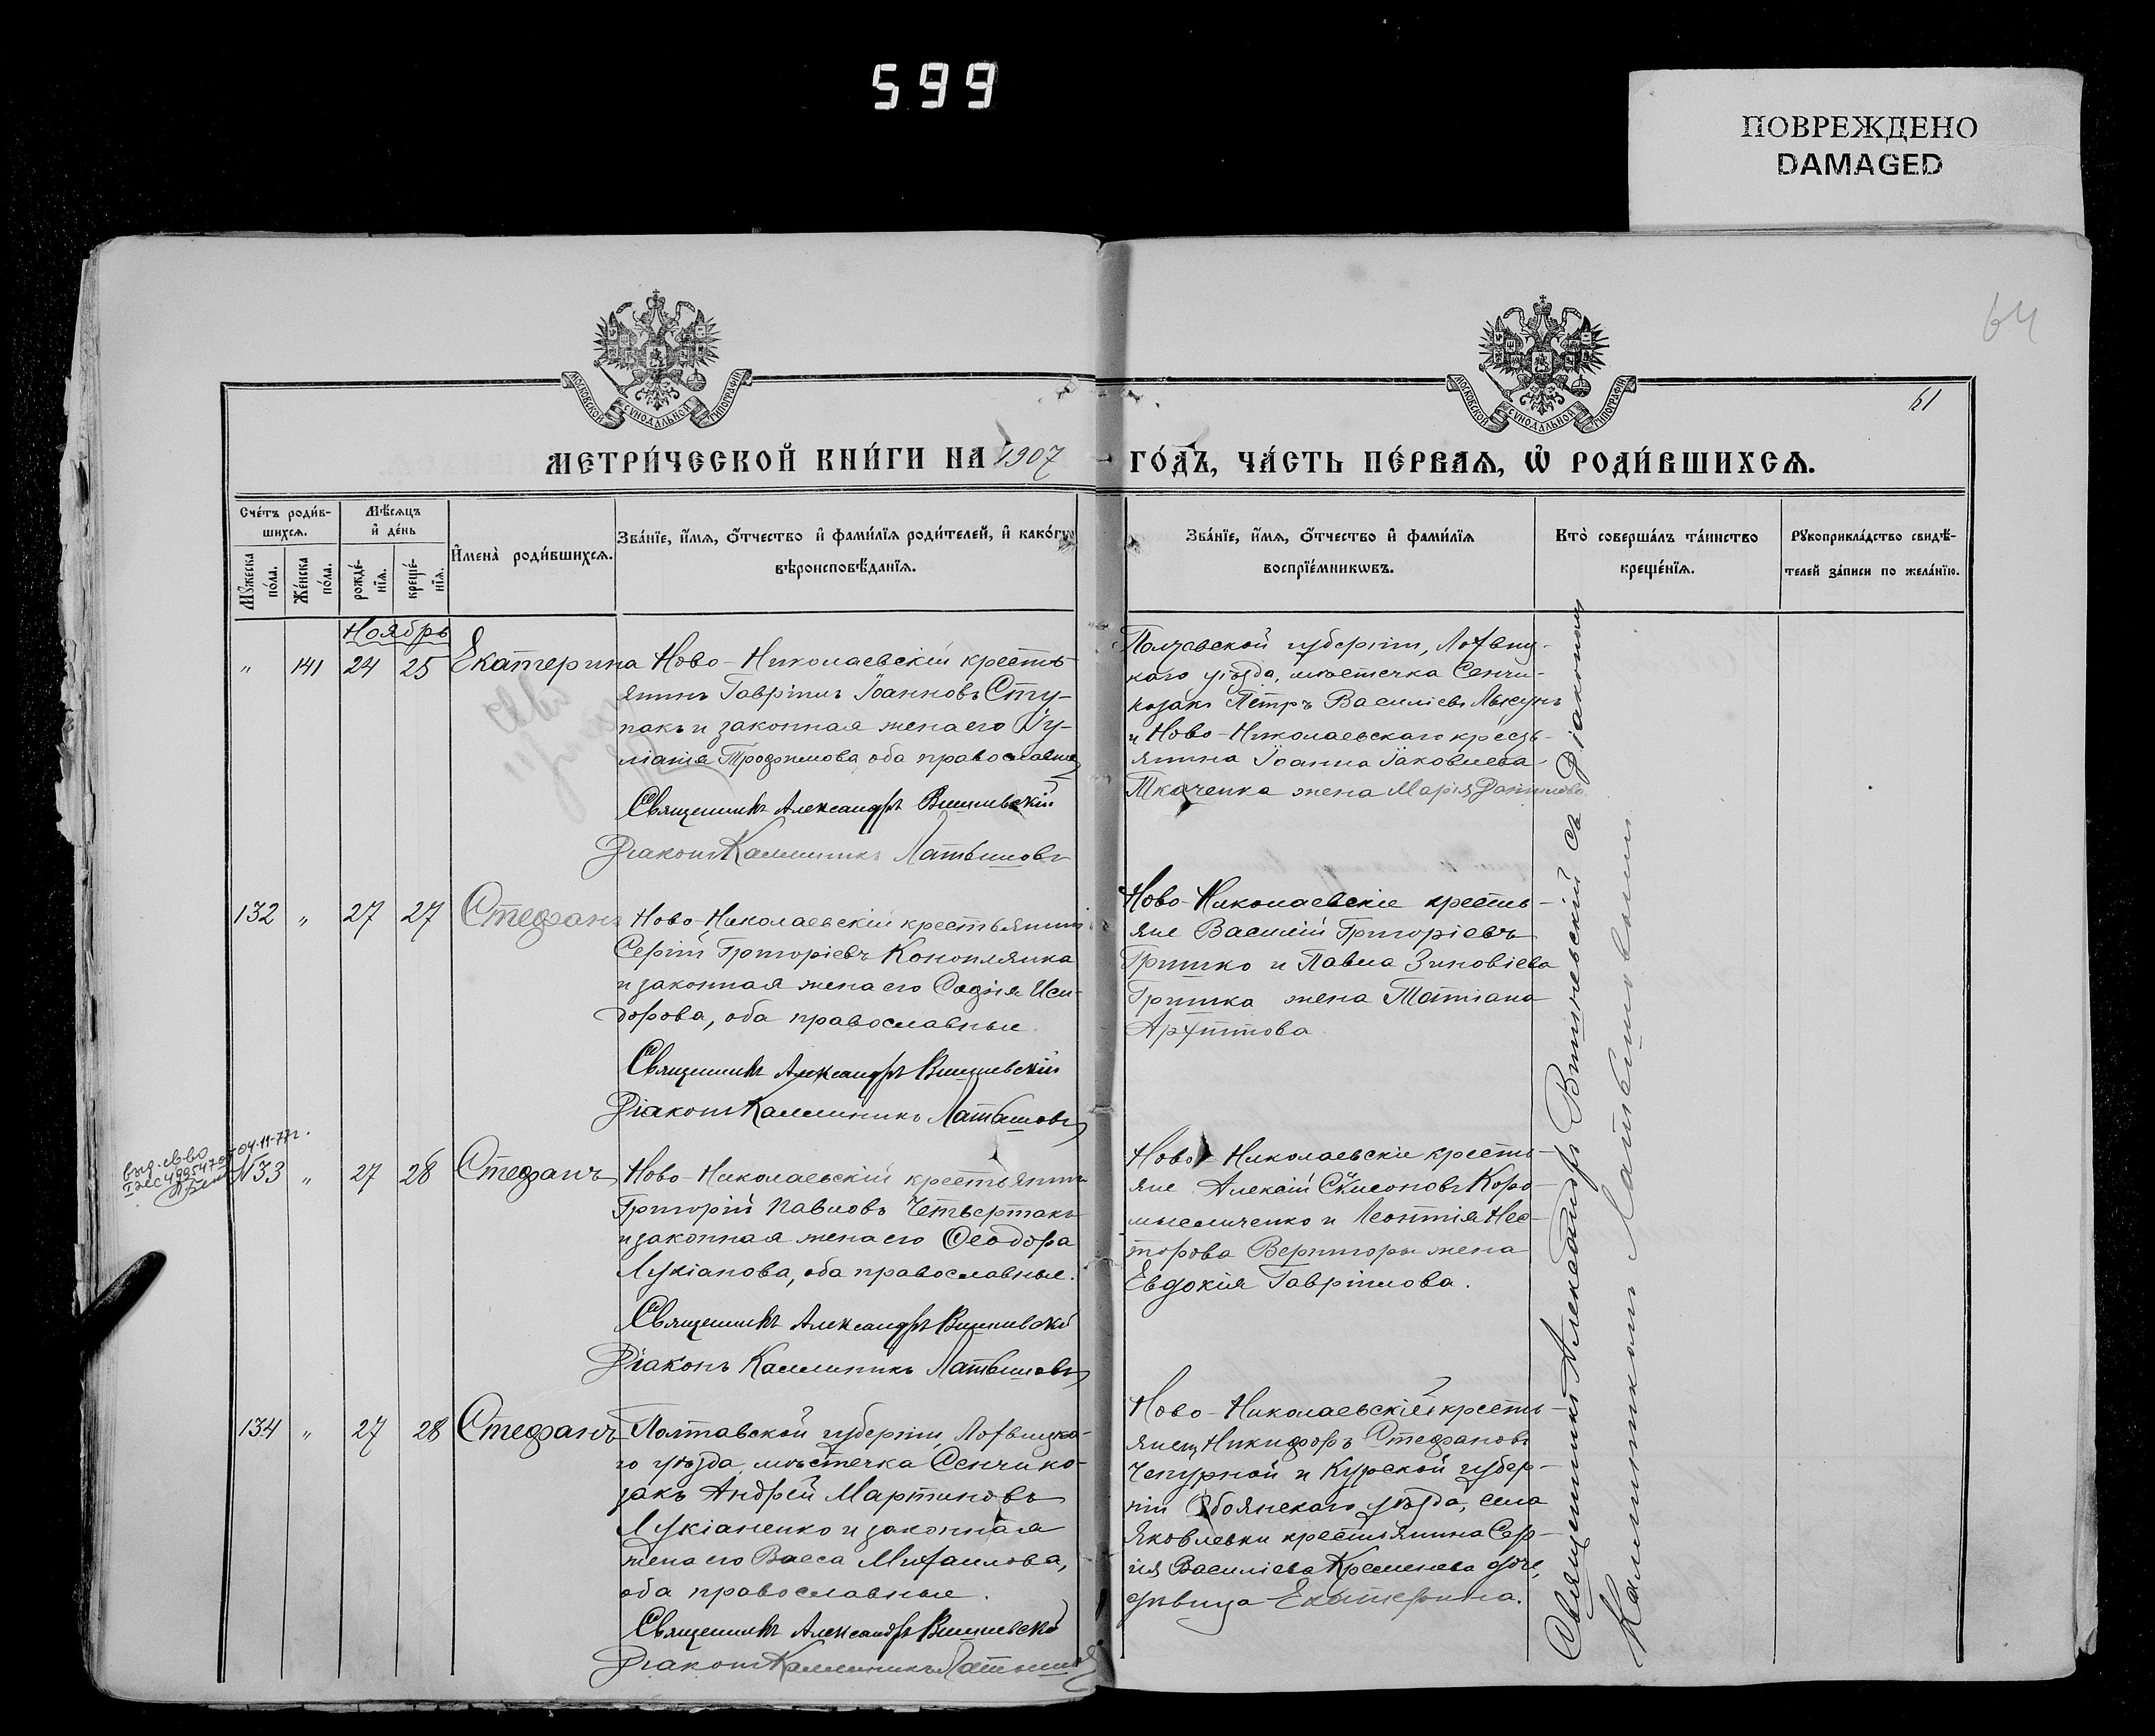 599
ПОВРЕЖДЕНО
DAMAGED
64
61
МОСКОВСКОЙ СѴНОДАЛЬНОЙ ТИПОГРАФІИ
МОСКОВСКОЙ СѴНОДАЛЬНОЙ ТИПОГРАФІИ
МЕТРИ́ЧЕСКОЙ КНИ́ГИ НА 1907
ГО́ДЪ, ЧА́СТЬ ПЕ́РВАѦ, Ѡ҆ РОДИ́ВШИХСѦ.
Сче́тъ роди́в-
шихсѧ.
Мꙋ́жеска
по́ла.
Же́нска
по́ла.
Мѣ́сѧцъ
и҆ де́нь
рожде́-
нїѧ.
креще́-
нїѧ.
И҆мена̀ роди́вшихсѧ.
Зва́нїе, и҆́мѧ, ѻ҆́тчество и҆ фами́лїѧ роди́телей, и҆ како́гѡ
вѣроисповѣ́данїѧ.
Зва́нїе, и҆́мѧ, ѻ҆́тчество и҆ фами́лїѧ
воспрїе́мникѡвъ.
Кто̀ соверша́лъ та́инство
креще́нїѧ.
Рꙋкоприкла́дство свидѣ́-
телей за́писи по жела́нїю.
Ноябрь
" 141 24 25 Екатерина
Ново-Николаевскій кресть-
янинъ Гавріилъ Іоанновъ Сту-
пакъ и законная жена его Іу-
ліанія Трофимова, оба православные
Священникъ Александръ Вишневскій
Діаконъ Каллиникъ Латышовъ
Полтавской губерніи, Лохвиц-
каго уѣзда, мѣстечка Сенчи-
козакъ Петръ Василіевъ
и Ново-Николаевскаго кресть-
янина Іоанна Іаковлева
Ткаченка жена Марія Даніилова
132 " 27 27 Стефанъ
Ново-Николаевскій крестьянинъ
Сергій Григоріевъ Коноплянка
и законная жена его Софія Иси-
дорова, оба православные.
Священникъ Александръ Вишневскій
Діаконъ Каллиникъ Латышовъ
Ново-Николаевскіе кресть-
яне Василій Григоріевъ
Гришко и Павла Зиновіева
Гришка жена Татіана
Архиппова
выд. св-во
04.11.77г.
133 " 27 28 Стефанъ
Ново-Николаевскій крестьянинъ
Григорій Павловъ Четвертакъ
и законная жена его Ѳеодора
Лукіанова, оба православные.
Священникъ Александръ Вишневскій
Діаконъ Каллиникъ Латышовъ
Ново-Николаевскіе кресть-
яне Алексій Симеоновъ Коро-
мысличенко и Леонтія Нес-
торова жена
Евдокія Гавріилова.
134 " 27 28 Стефанъ
Полтавской губерніи, Лохвицка-
го уѣзда, мѣстечка Сенчи ко-
закъ Андрей Мартиновъ
Лукіаненко и законная
жена его Васса Михаилова,
оба православные.
Священникъ Александръ Вишневскій
Діаконъ Каллиникъ Латышовъ
Ново-Николаевскій кресть-
янец Никифоръ Стефановъ
Чепурной и Курской губер-
ніи Обоянскаго уѣзда, села
Яковлевки крестьянина Сер-
гія Василіева Кременева дочь,
дѣвица Екатерина.
Священникъ Александръ Вишневскій съ Діакономъ
Каллиникомъ Латышовымъ